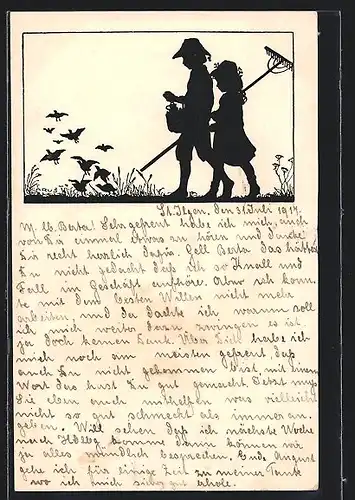 St. Ilgen, den 31. Juli 1917.
M. lb. Berta! Sehr gefreut habe ich mich, auch
von Dir einmal etwas zu hören und danke
Dir recht herzlich dafür. Gell Berta das hättest
Du nicht gedacht daß ich so Knall und
Fall im Geschäft aufhöre. Aber ich konn
te mit dem besten Willen nicht mehr
arbeiten, und da dachte ich, warum soll
ich mich weiter dazu zwingen es ist
ja doch keinen Dank. Über Dich habe ich
mich noch am meisten gefreut, daß
auch Du nicht gekommen bist, mit einem
Wort das hast Du gut gemacht. Jetzt muß
Sie eben auch mithelfen was vielleicht
nicht so gut schmeckt als immer an
geben. Will sehen daß ich nächste Woche
nach Hdlbg. komme dann können wir
ja alles mündlich besprechen. Ende August
gehe ich für einige Zeit zu meiner Tante
wo ich mich sicher gut erhole.